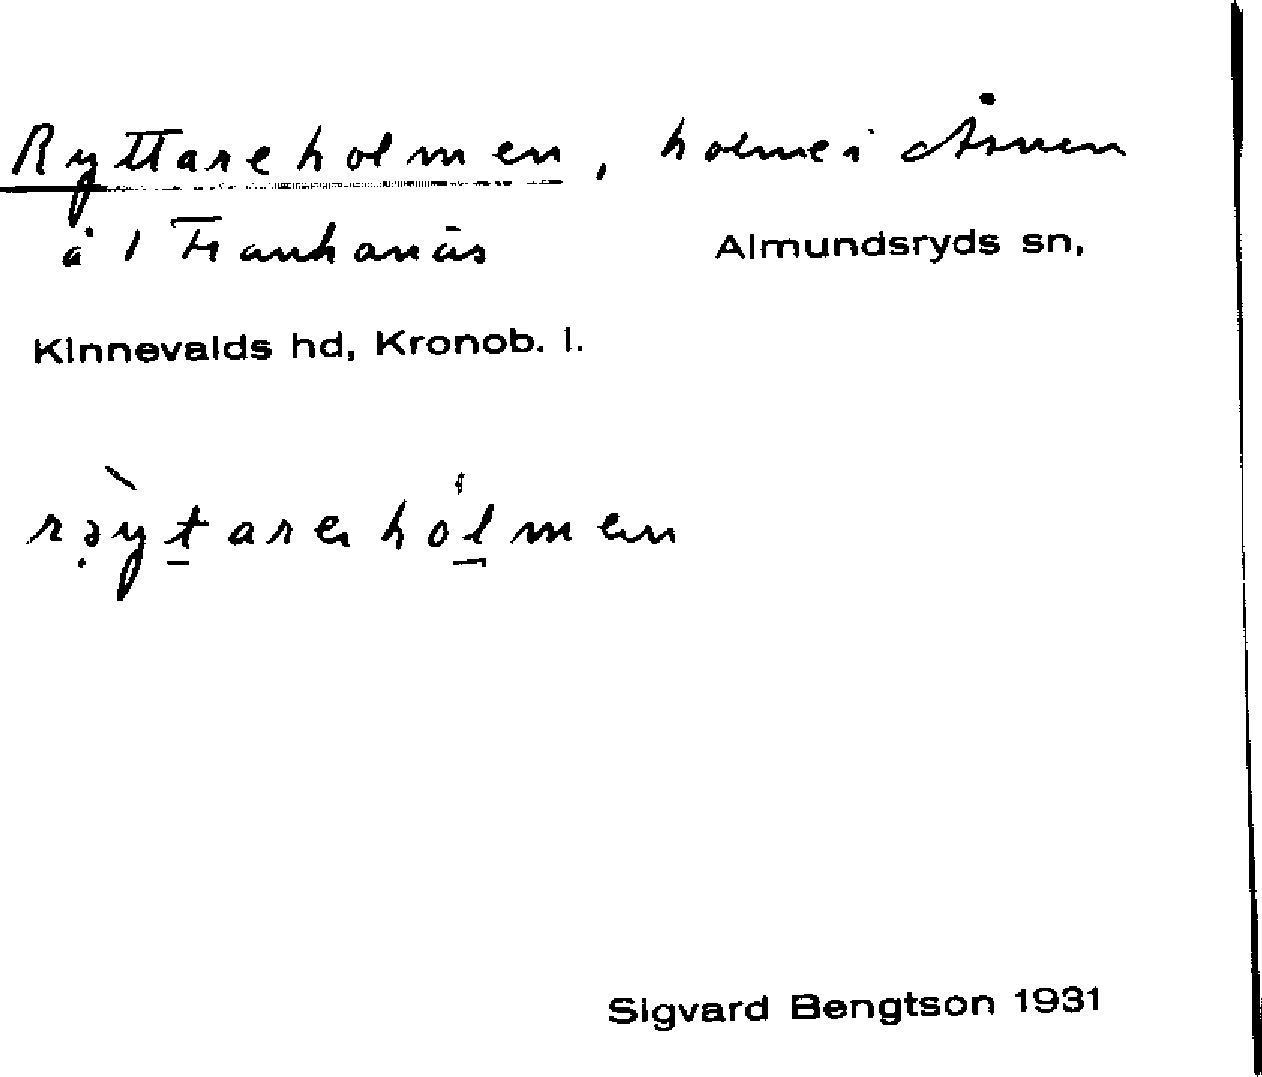 Ryttareholmen, holme i Åsnen
å 1 Frankanäs Almundsryds sn,
Kinnevalds hd, Kronob. l.
rəytareholmen
Sigvard Bengtson 1931